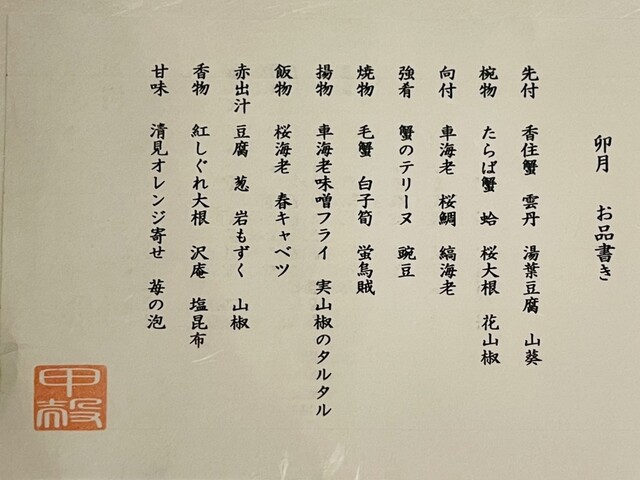 卯月　お品書き
先付　香住蟹　雲丹　湯葉豆腐　山葵
椀物　たらば蟹　蛤　桜大根　花山椒
向付　車海老　桜鯛　縞海老
強肴　蟹のテリーヌ　豌豆
焼物　毛蟹　白子筍　蛍烏賊
揚物　車海老味噌フライ　実山椒のタルタル
飯物　桜海老　春キャベツ
赤出汁　豆腐　葱　岩もずく　山椒
香物　紅しぐれ大根　沢庵　塩昆布
甘味　清見オレンジ寄せ　苺の泡
甲殻